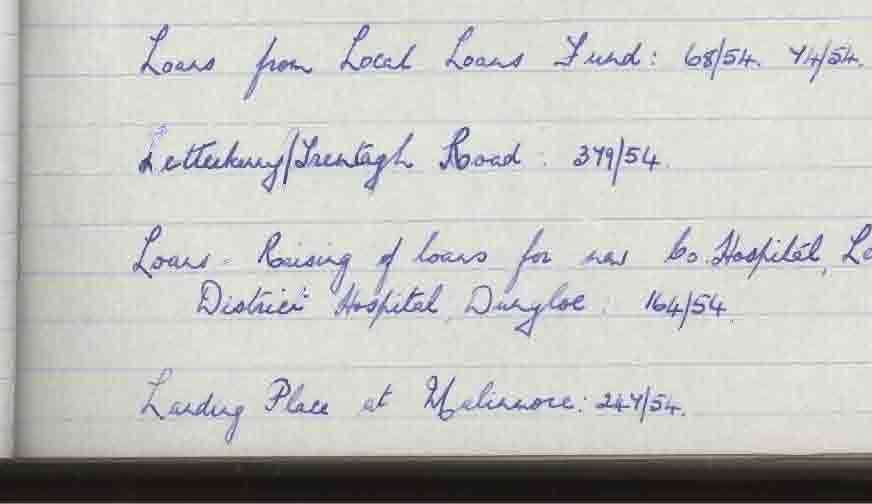 Loans from Local Loans Fund: 68/54. 74/54.
Letterkenny/Trentagh Road: 379/54.
Loans - Raising of loans for new Co. Hospital,
District Hospital, Dungloe: 164/54.
Landing Place at Malinmore: 247/54.